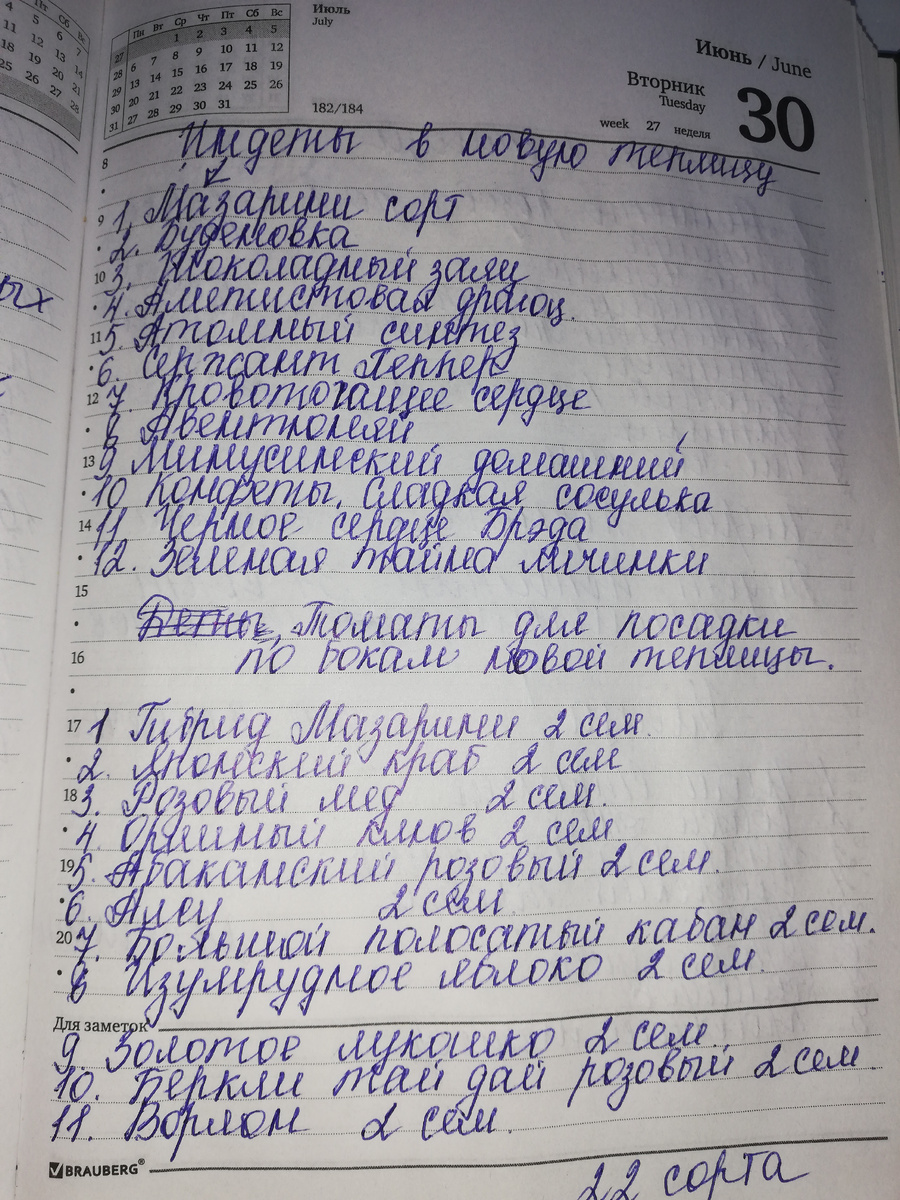 Июль
July
Пн Вт Ср Чт Пт Сб Вс
1 2 3 4 5
27
28 6 7 8 9 10 11 12
29 13 14 15 16 17 18 19
30 20 21 22 23 24 25 26
31 27 28 29 30 31
182/184
Июнь / June
Вторник
Tuesday
week 27 неделя
30
8 Индеты в новую теплицу
9 1. Мазарини сорт
2. Буденовка
10 3. Шоколадный заяц
4. Аметистовая драгоц.
11 5 Атомный синтез
6. Сержант Пеппер
12 7. Кровоточащее сердце
8 Авентюней
13 9 Минусинский домашний
10 Конфеты, сладкая сосулька
14 11 Черное сердце Брэда
12. Зеленая тайна личинки
15
Томаты для посадки
16 по бокам новой теплицы.
17 1 Гибрид Мазарини 2 сем.
2. Японский краб 2 сем
18 3. Розовый мед 2 сем.
4 Орлиный клюв 2 сем
19 5. Абаканский розовый 2 сем.
6. Алсу 2 сем
20 7. Большой полосатый кабан 2 сем.
8 Изумрудное яблоко 2 сем.
Для заметок
9 Золотое лукошко 2 сем
10. Беркли тай дай розовый 2 сем
11. Ворлон 2 сем.
BRAUBERG®
22 сорта